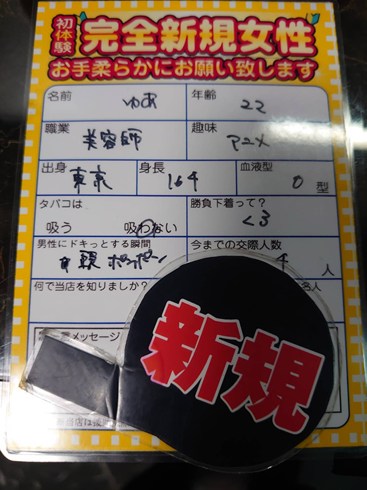 初体験 完全新規女性
お手柔らかにお願い致します
名前 ゆあ 年齢 22
職業 美容師 趣味 アニメ
出身 東京 身長 164 血液型 O 型
タバコは 勝負下着って?
吸う 吸わない く3
男性にドキっとする瞬間 今までの交際人数
頭ポンポン 4 人
何で当店を知りましたか? 名人
メッセージ
新規